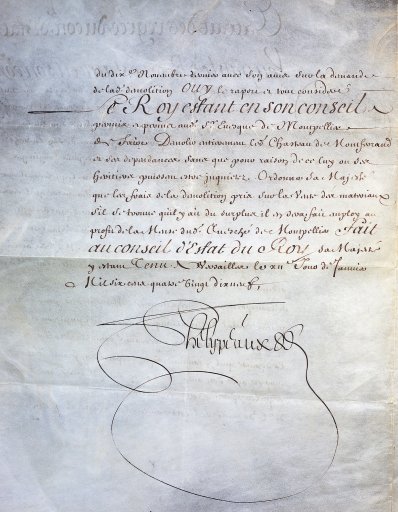 du dix.e Novembre dernier avec son avis sur la demande
de lad. demolition OUY le raport et tout consideré
LE ROY estant en son conseil a
permis et permet aud. S.r Evesque de Montpellier
de faire Demolir entierement led. Chasteau de Montferrand
et ses dependances sans que pour raison de ce luy ou ses
heritiers puissent estre inquietez. Ordonne sa Majesté
que les frais de la demolition pris sur la vente des materiaux
s'il se trouve qu'il y ait du surplus il en sera fait employ au
profit de la Mense dud. Evesché de Montpellier Fait
au conseil d'Estat du Roy, sa Majesté
y estant Tenu a Versailles le Jour de Janvier
Mil six cens quatre vingt dix neuf,
Phelypeaux